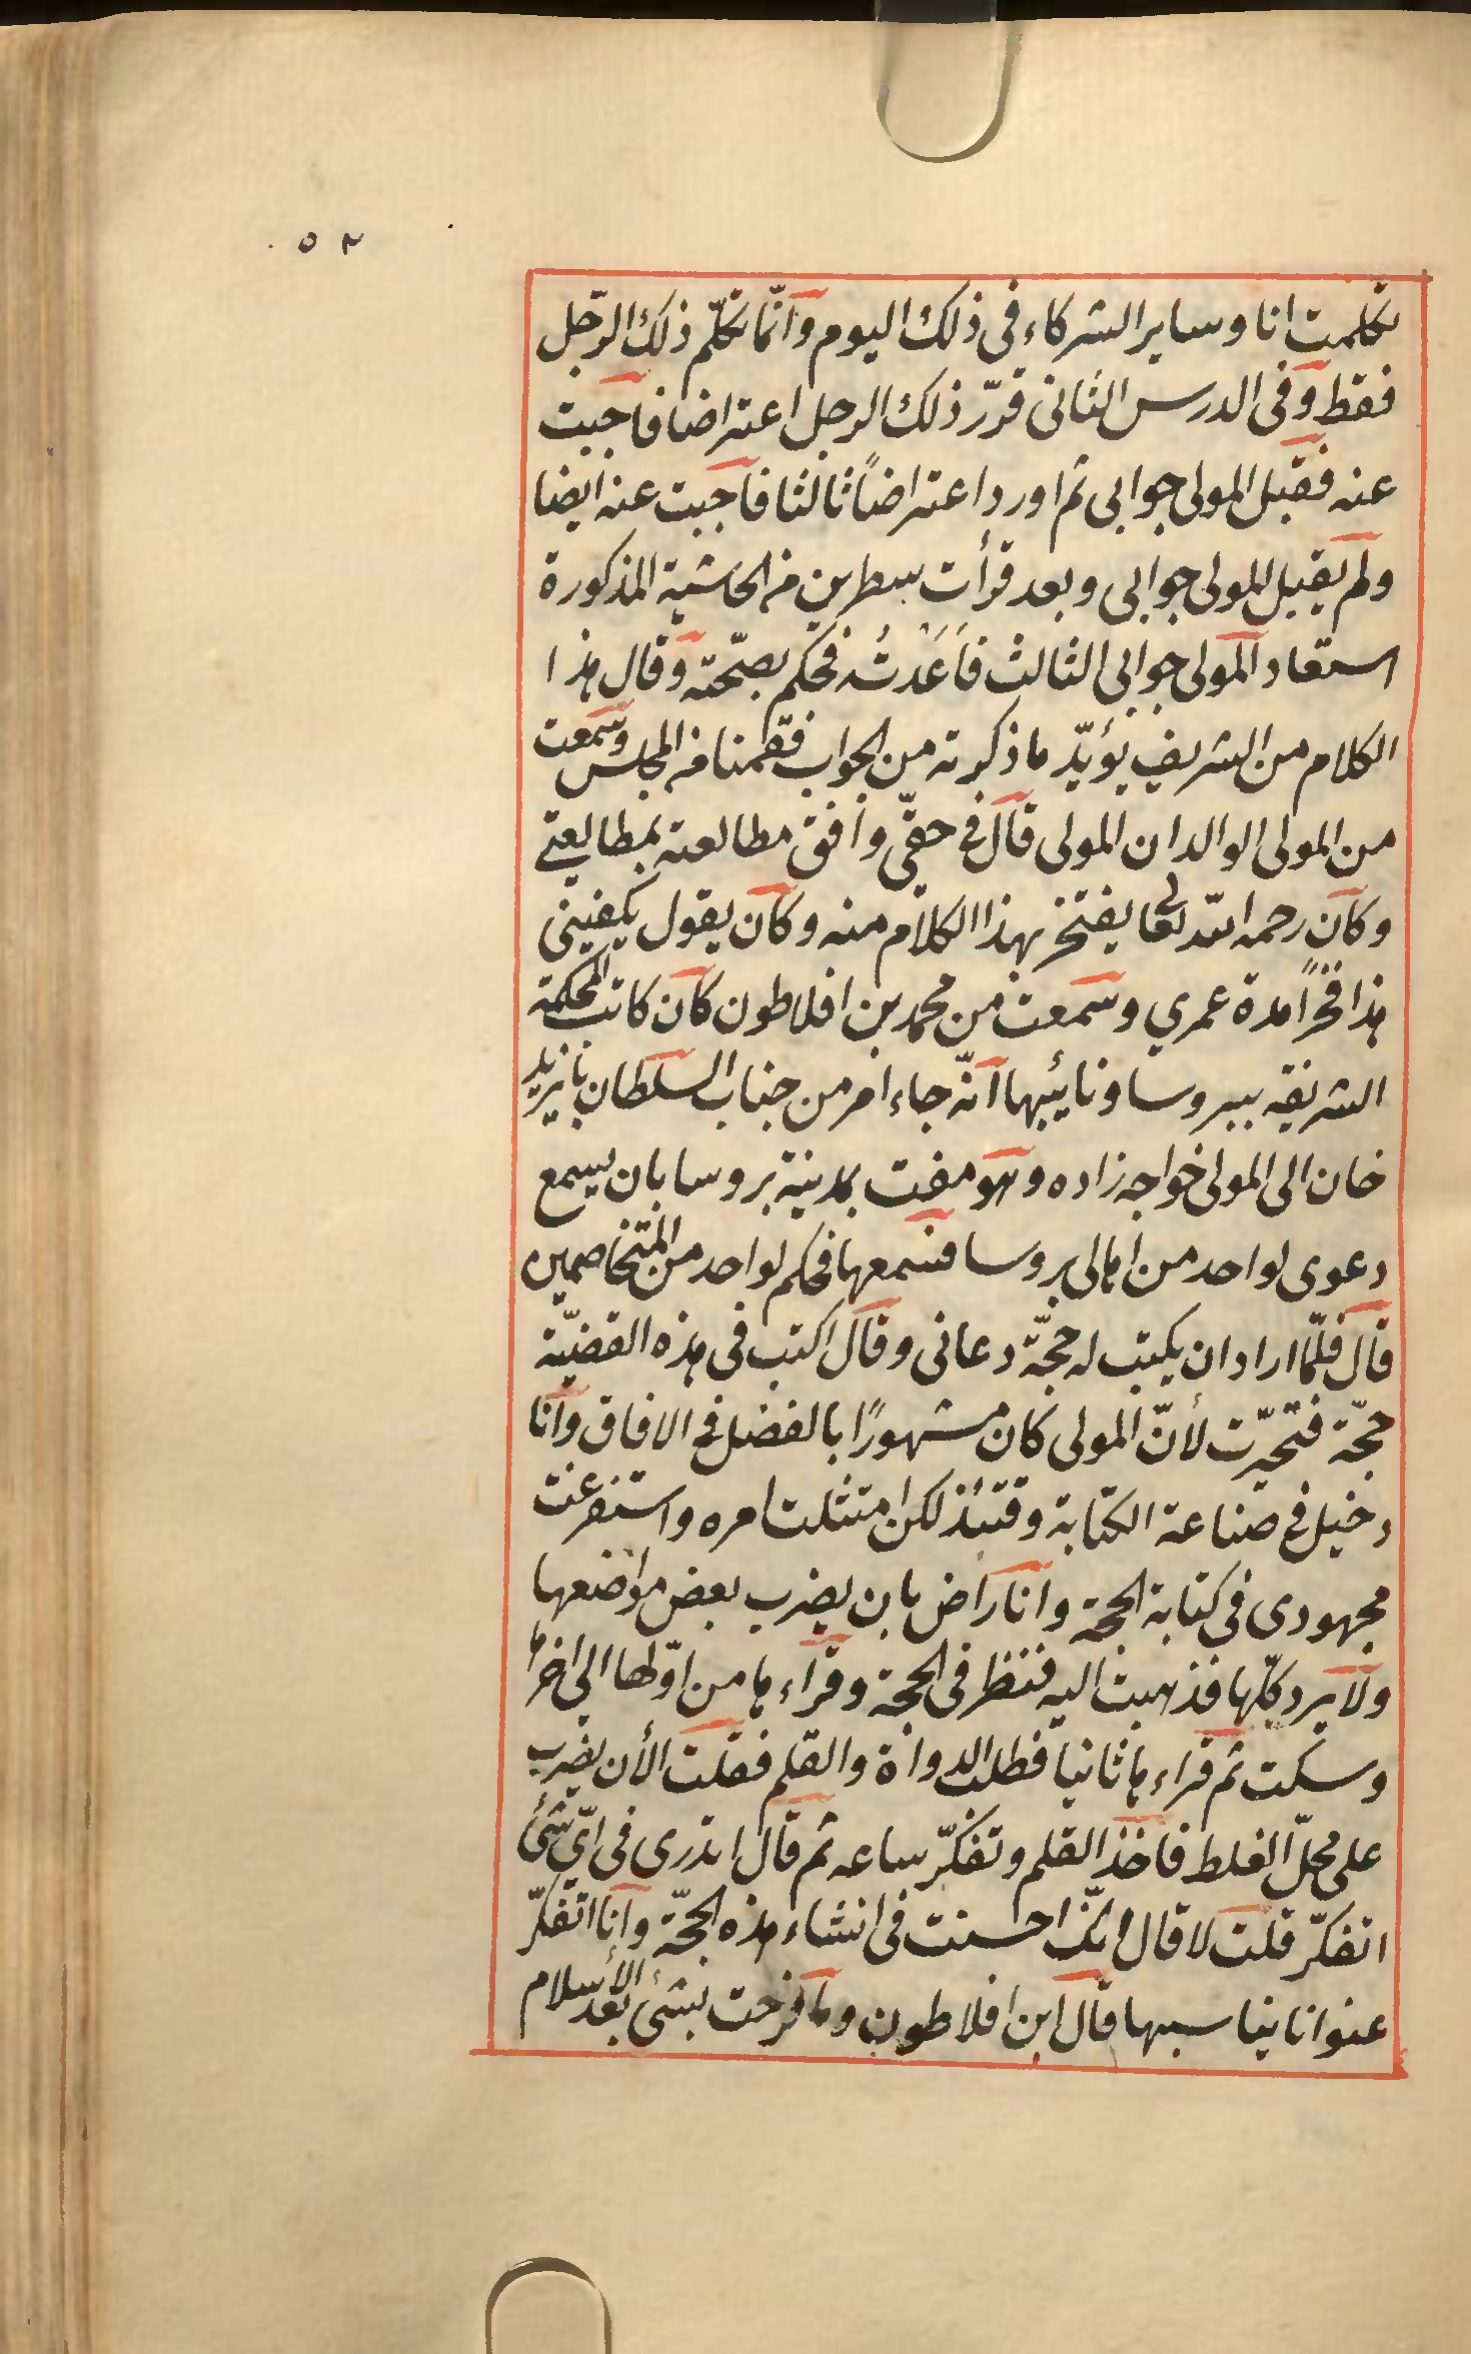 ٥٢
تكلمت انا وساير الشركاء فى ذلك اليوم وانّما تكلّم ذلك الرّجل
فقط وفى الدرس الثانى قرّر ذلك الرجل اعتراضا فاجبت
عنه فقبل المولى جوابى ثم اورد اعتراضاً ثالثا فاجبت عنه ايضا
ولم يقبل المولى جوابى وبعد قرأت سطرين من الحاشية المذكورة
استعاد المولى جوابى الثالث فاَعَدْتُه فحكم بصحّته وقال هذا
الكلام من الشريف يؤيّد ما ذكرته من الجواب فقمنا من المجلس وسمعت
من المولى الوالد ان المولى قال فى حقّى وافق مطالعته بمطالعتى
وكان رحمه الله تعالى يفتخر بهذا الكلام منه وكان يقول يكفينى
هذا فخراً مدة عمري وسمعت من محمد بن افلاطون كان كاتب المحكمة
الشريفة ببروسا ونائبها انّه جاء امر من جناب السلطان بايزيد
خان الى المولى خواجه زاده وهو مفت بمدينة بروسا بان يسمع
دعوى لواحد من اهالى بروسا فسمعها فحكم لواحد من المتخاصمين
قال فلمّا اراد ان يكتب له حجّة دعانى وقال اكتب فى هذه القضيّة
حجّة فتحيّرت لأنّ المولى كان مشهورًا بالفضل فى الافاق وانا
دخيل فى صناعة الكتابة وقتئذ لكن امتثلت امره واستفرغت
مجهودى فى كتابة الحجة وانا راض بان يضرب بعض مواضعها
ولا يرد كلّها فذهبت اليه فنظر فى الحجة وقراءها من اوّلها الى اخرها
وسكت ثم قراءها ثانيا فطلب الدواة والقلم فقلت الأن يضرب
على محلّ الغلط فاخذ القلم وتفكّر ساعه ثم قال اتدرى فى ايّ شئ
اتفكّر قلت لا قال انّك احسنت فى انشاء هذه الحجّة وانا اتفكّر
عنوانا يناسبها قال ابن افلاطون وما فرحت بشئ بعد الأسلام